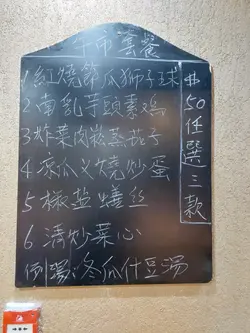 午市套餐
1紅燒節瓜獅子球
2南乳芋頭素鸡
3炸菜肉崧蒸茄子
4凉瓜义燒炒蛋
5椒盐蟮丝
6清炒菜心
例湯:冬瓜什豆湯
$50任選三款